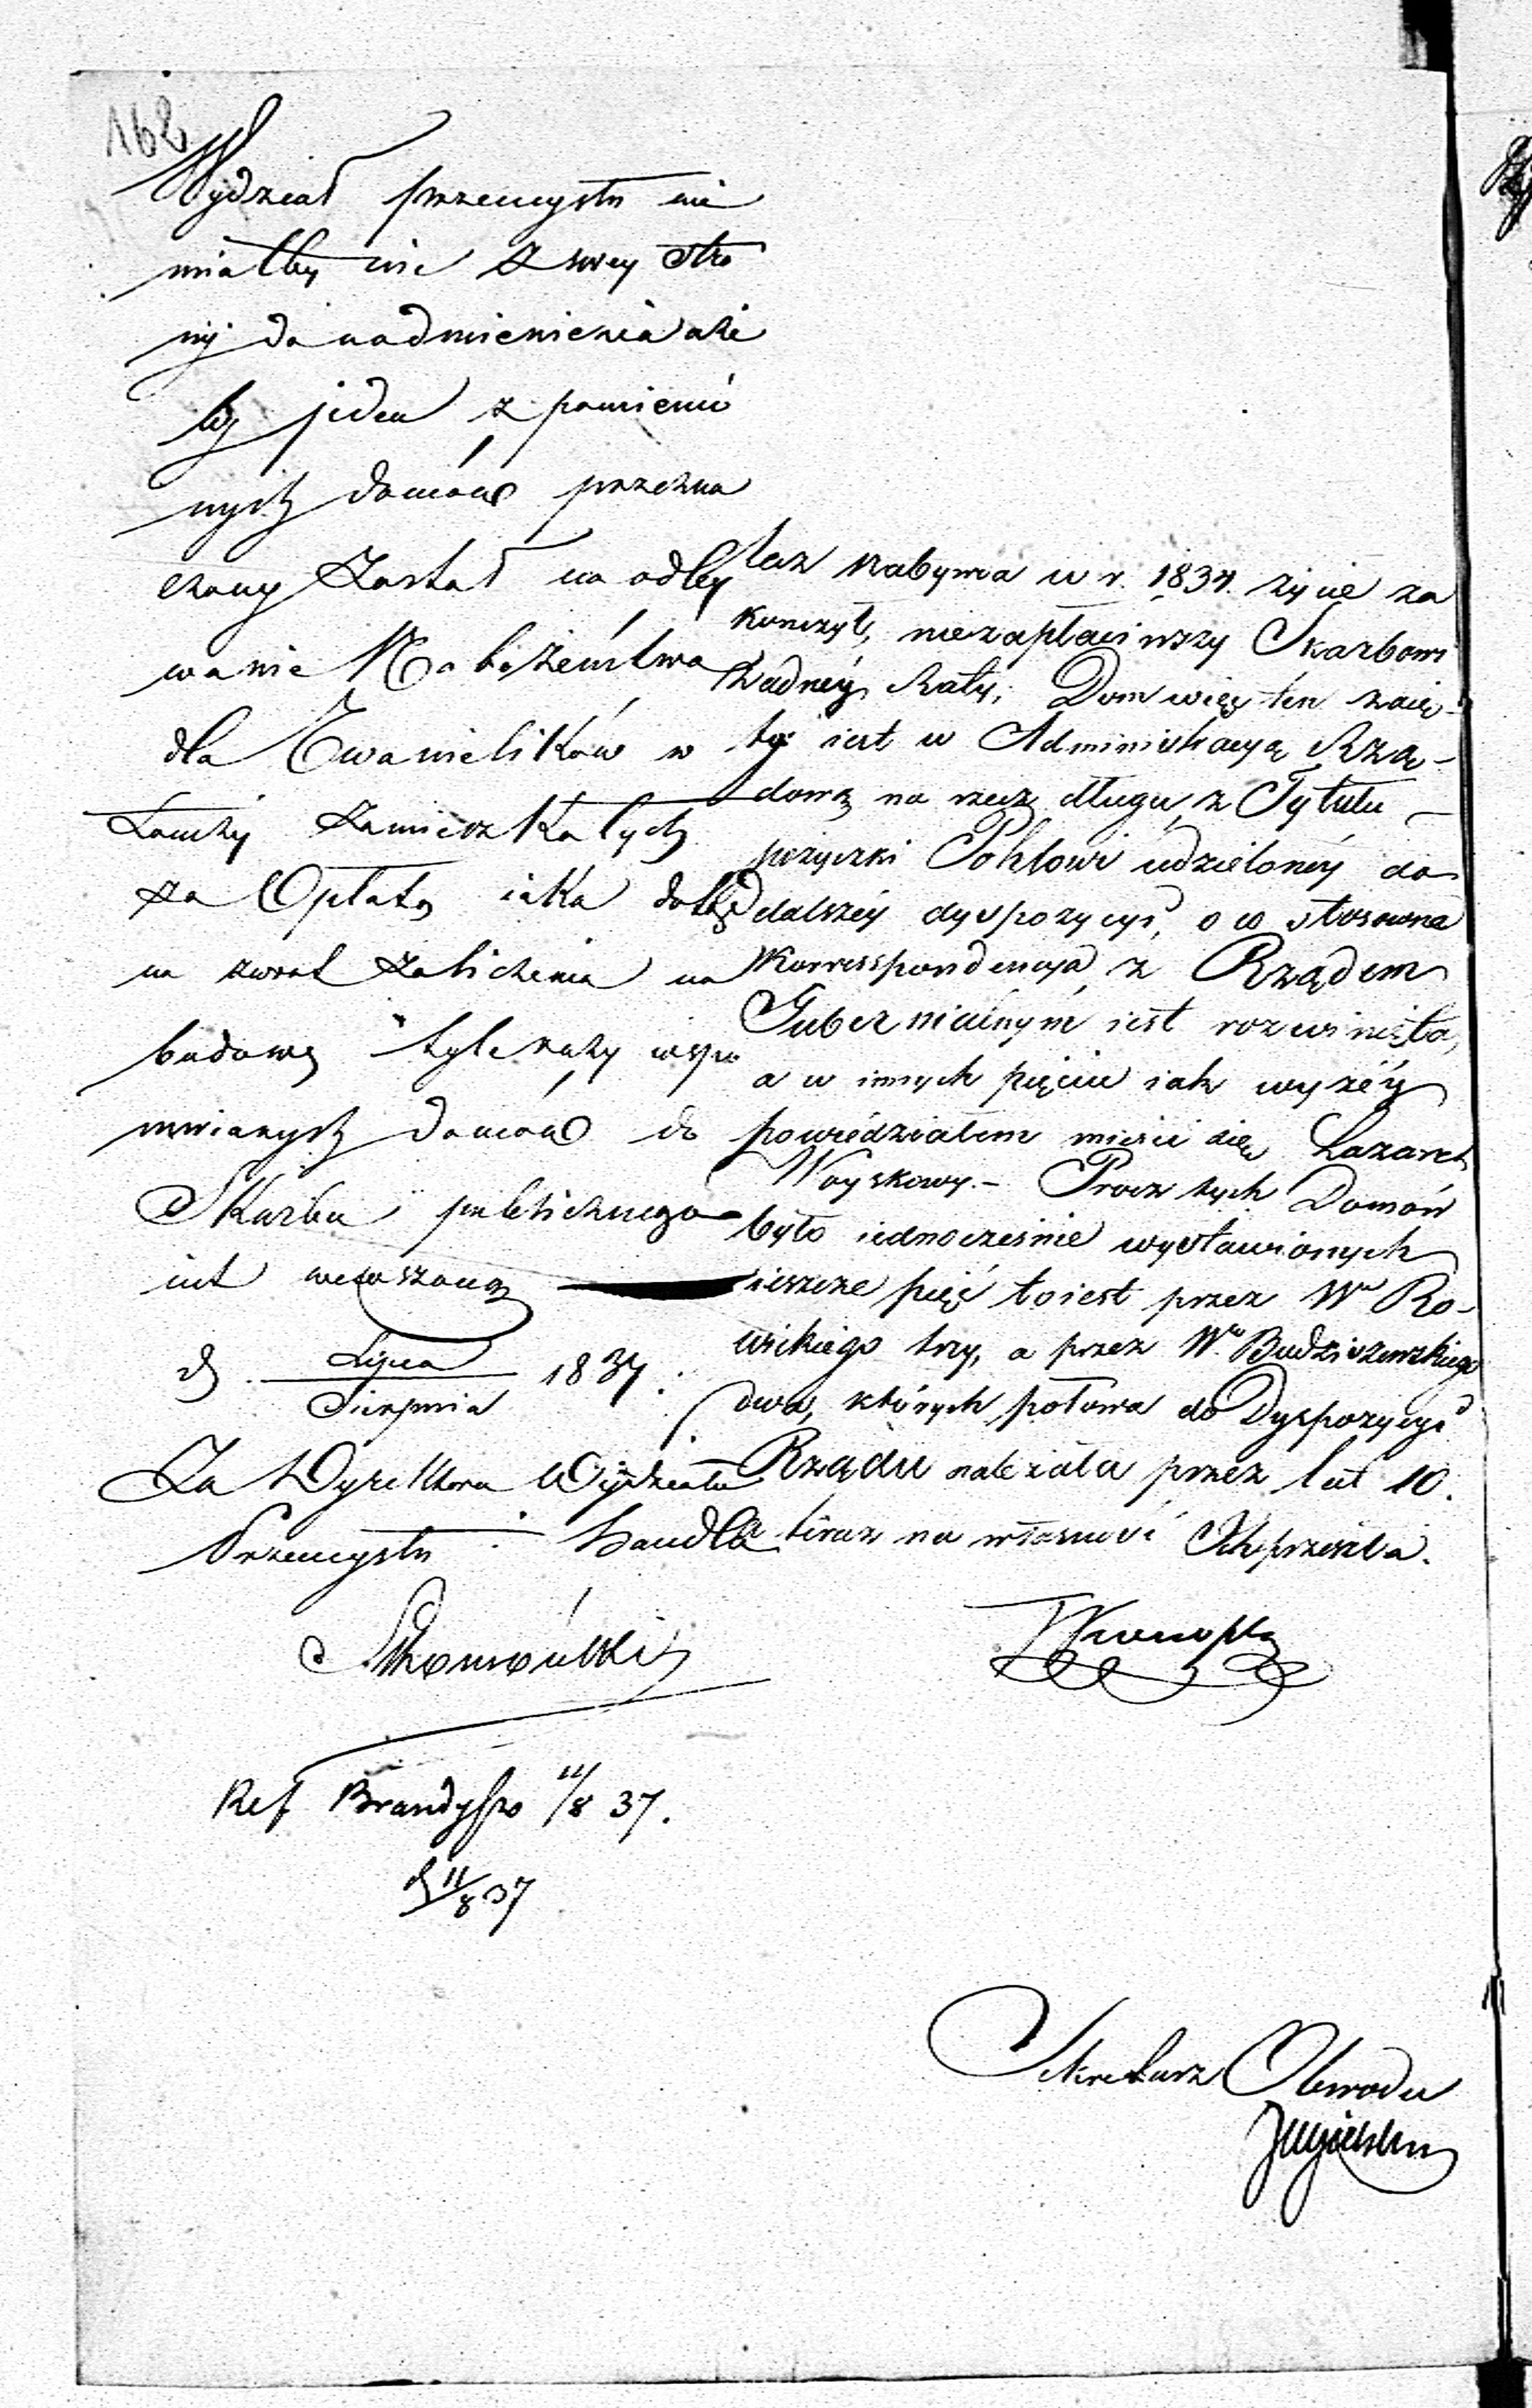 162
Wydział przemysłu nie
miałby nic z swey stro
ny do nadmienienia aże
by jeden z pomienio
nych domów przezna
czony został na odby
wanie Nabożeństwa
dla Ewanielików w
Łomży zamieszkałych
za Opłatą iaka dotąd
na zwrot zaliczenia na
budowę tyle razy wspo
mnianych domów do
Skarbu publicznego
iest wnoszoną
d. Lipca / Sierpnia 1837.
Za Dyrektora Wydziału
Przemysłu i Handlu
Ref Brandys 11/8 37.
d 11/8 37
tez nabywca w r. 1834. życie za
kończył, niezapłaciwszy Skarbowi
żadnéy Raty; Dom więc ten zaię-
ty iest w Administracyą Rzą-
dową na rzecz długu z Tytułu
pożyczki Pohlowi udzielonéy do
dalszéy dyspozycyi, o co stosowna
Korrespondencya z Rządem
Gubernialnym iest rozwinięta,
a w innych pięciu iak wyżéy
powiedziałem mieści się Lazaret
Woyskowy. - Procz tych Domów
było iednocześnie wystawionych
ieszcze pięć to iest przez Wo Ro-
wickiego trzy, a przez Wo Budziszewskiego
dwa, których połowa do Dyspozycyi
Rządu należała przez lat 10.
teraz na własność Ich przeszła.
Sekretarz Obwodu